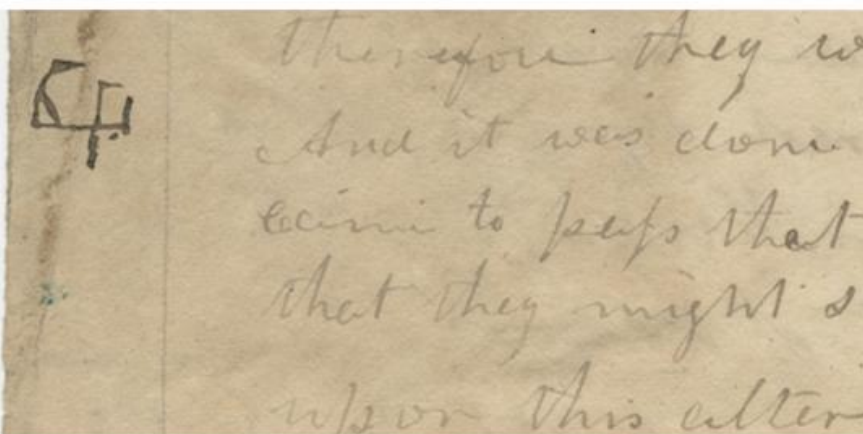 therefore they w
And it was done
came to pass that
that they might s
upon this alter